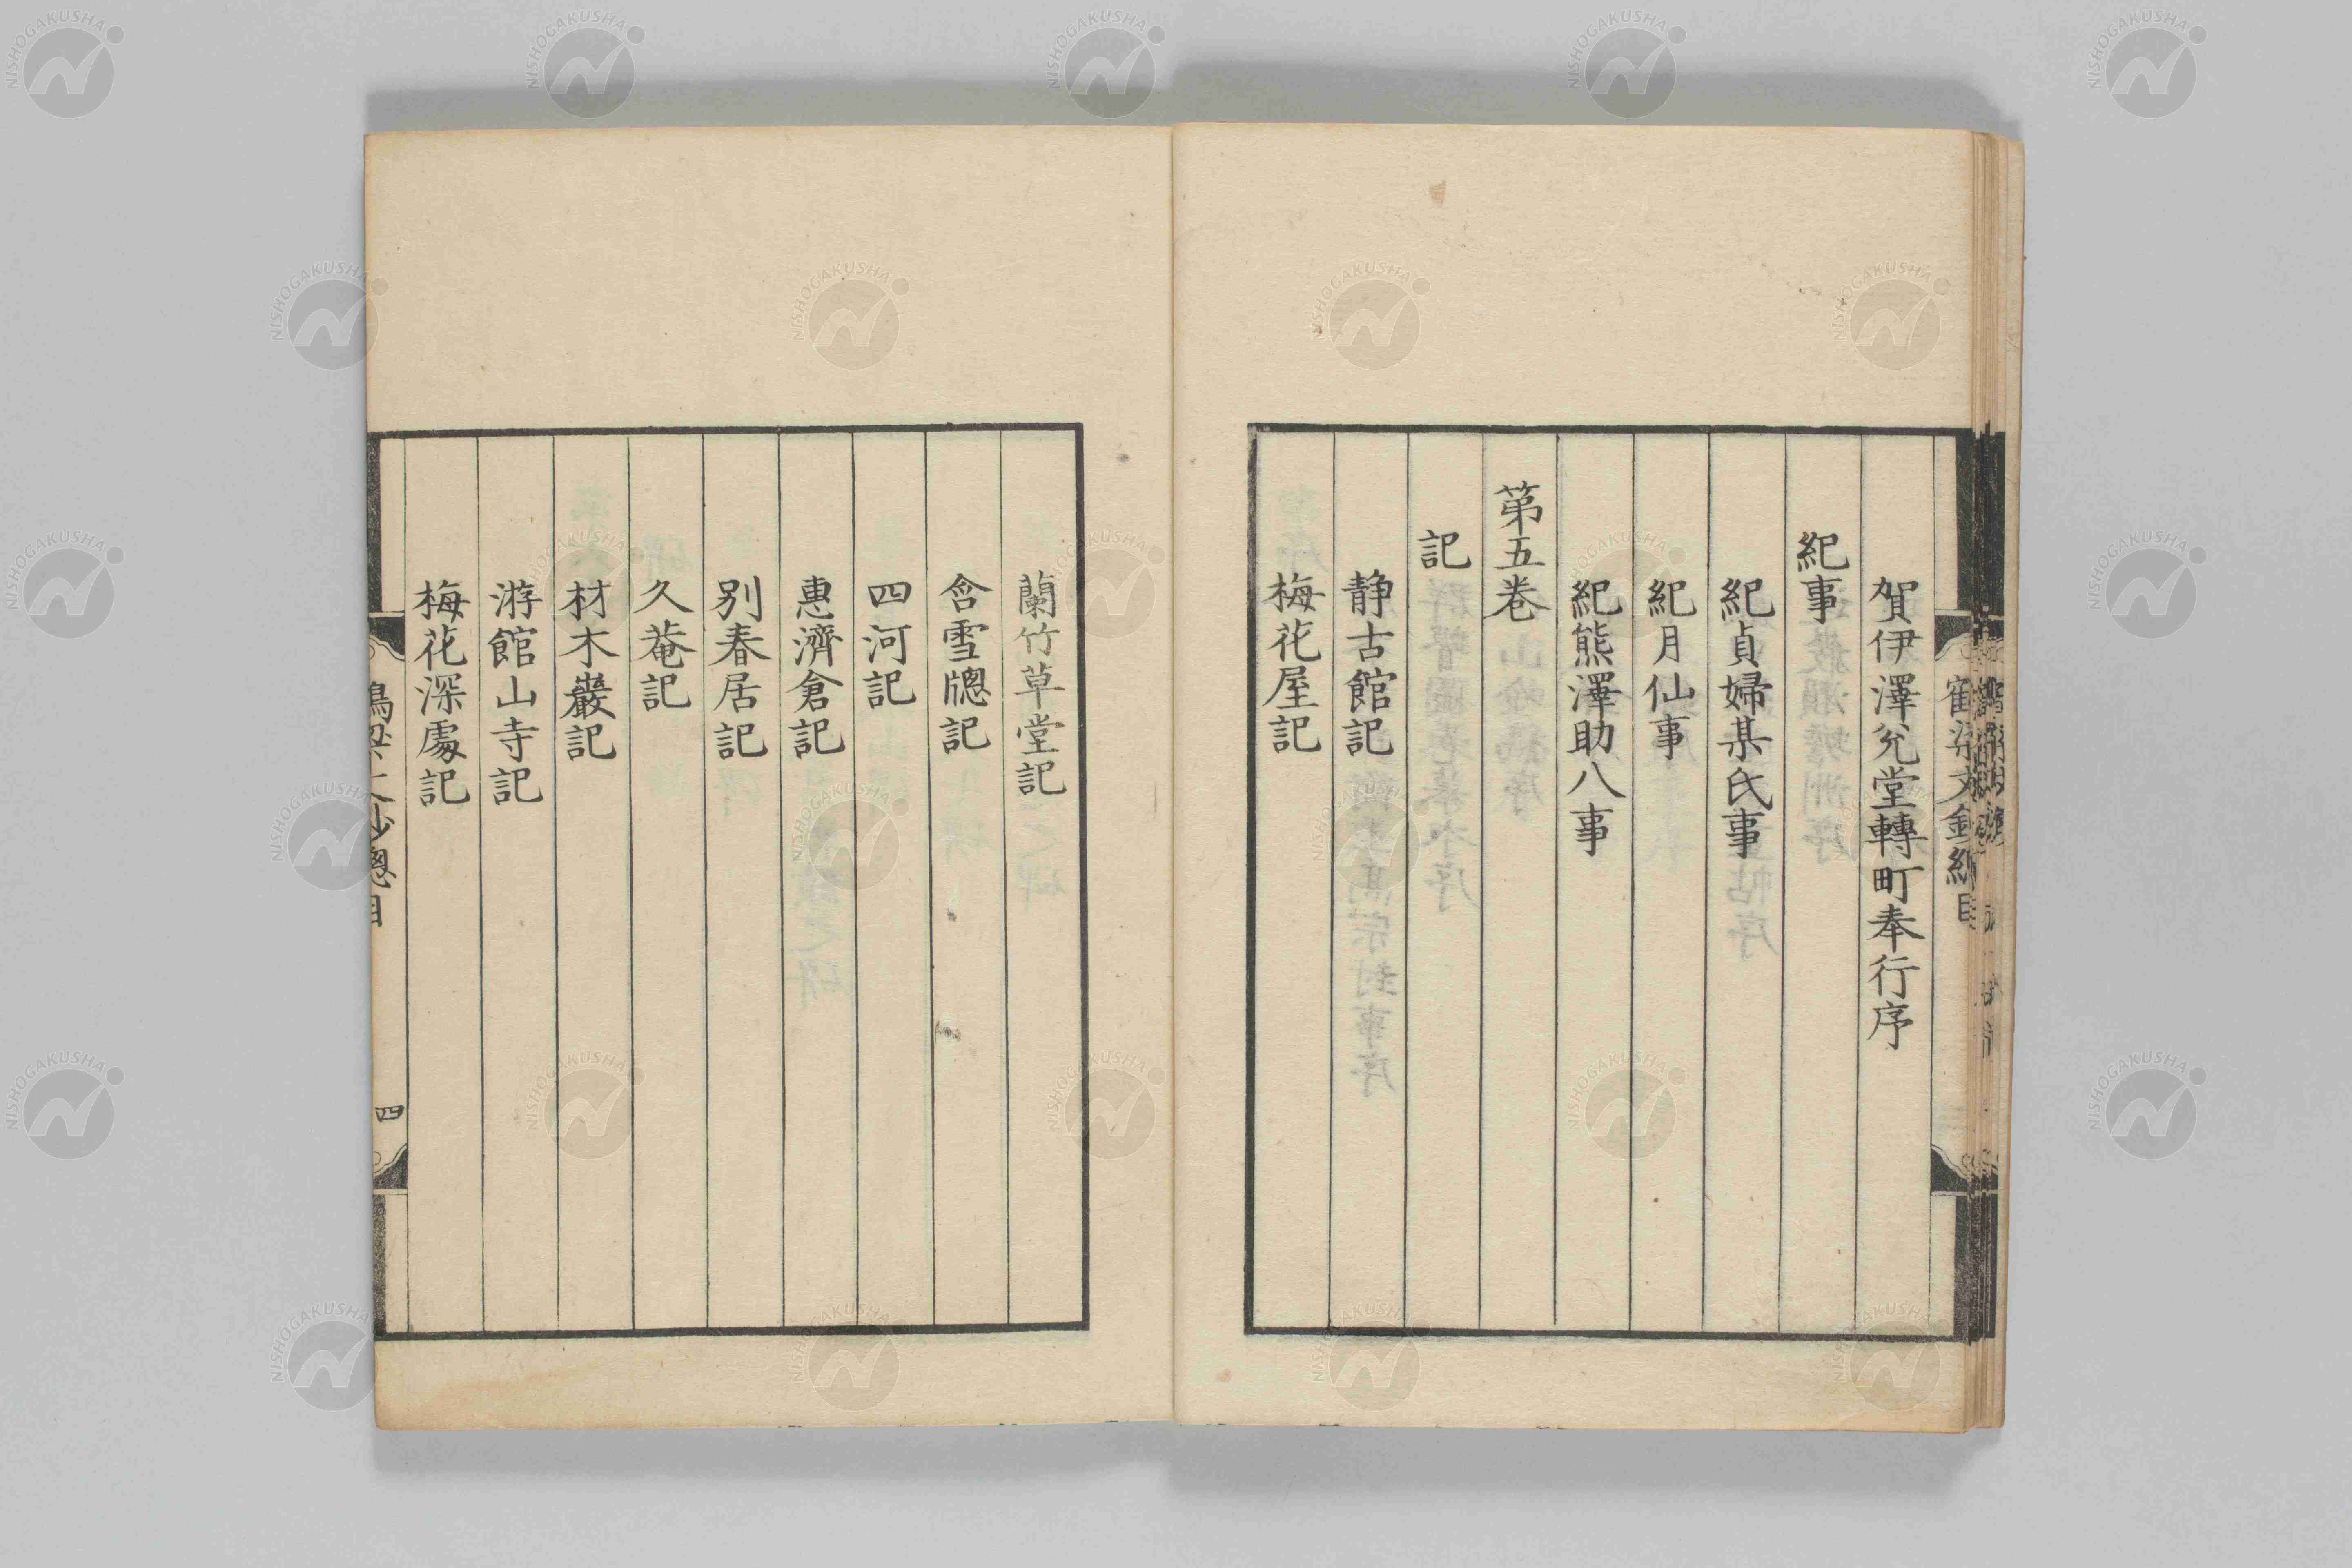 賀伊澤兊堂轉町奉行序
紀事
紀貞婦某氏事
紀月仙事
紀熊澤助八事
第五卷
記
静古館記
梅花屋記
蘭竹草堂記
含雪牕記
四河記
惠濟倉記
別春居記
久菴記
材木巖記
游館山寺記
梅花深處記
四
NISHOGAKUSHA